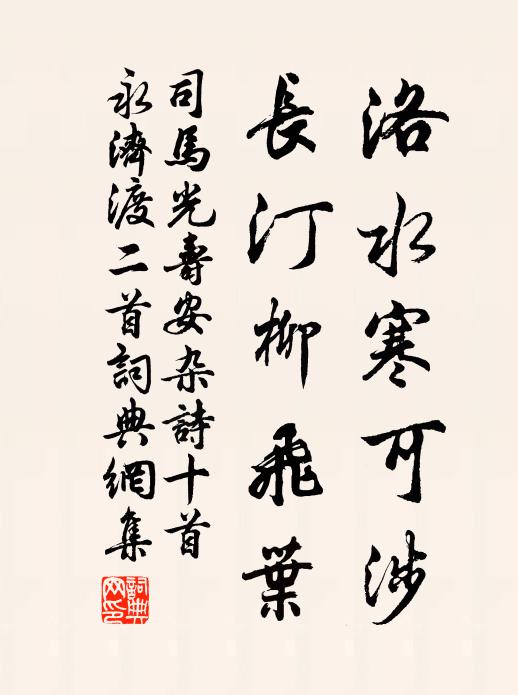 洛水寒可涉
長汀柳飛葉
司馬光壽安杂詩十首
永濟渡二首詞典網集
詞典網印